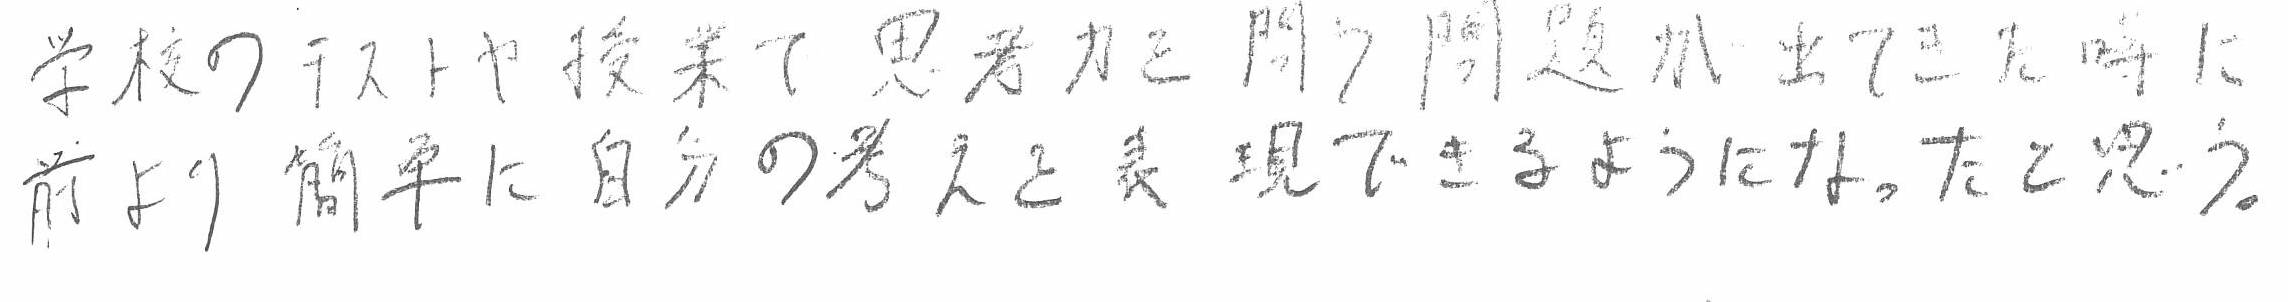 学校のテストや授業で思考力を問う問題が出てきた時に
前より簡単に自分の考えを表現できるようになったと思う。